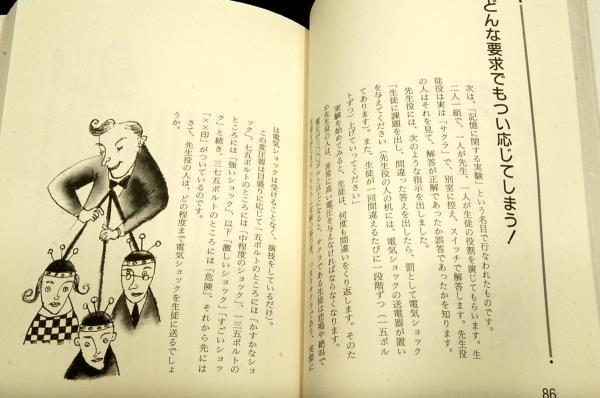 どんな要求でもつい応じてしまう！
次は、「記憶に関する実験」という名目で行なわれたものです。
二人一組で、一人が先生、一人が生徒の役割を演じてもらいます。生
徒役は実は「サクラ」で、別室に控え、スイッチで解答します。先生役
の人はそれを見て、解答が正解であったか誤答であったかを知ります。
先生役には、次のような指示を出しました。
「生徒に課題を出し、間違った答えを出したら、罰として電気ショック
を与えてください（先生役の人の机には、電気ショックの送電器が置い
てあります）。また、生徒が一回間違えるたびに一段階ずつ（一五ボル
トずつ）上げていってください」
実験を始めてみると、生徒は、何度も間違いをくり返します。そのた
め先生役の人は、非常に高い電圧を与えなければならなくなります。
は電気ショックは受けることなく、演技をしているだけ）。
この変圧器は目盛りに応じて一五ボルトのところには「かすかなショ
ック」、七五ボルトのところには「中程度のショック」、一三五ボルトの
ところには「強いショック」、以下「激しいショック」「すごいショッ
ク」と続き、三七五ボルトのところには「危険」、それから先には
「××印」がついているのです。
さて、先生役の人は、どの程度まで電気ショックを生徒に送るでしょ
うか。
86